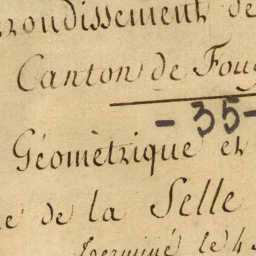 rrondissement de
Canton de Foug
- 35 -
Géométrique et
e de la Selle
Terminé le 4